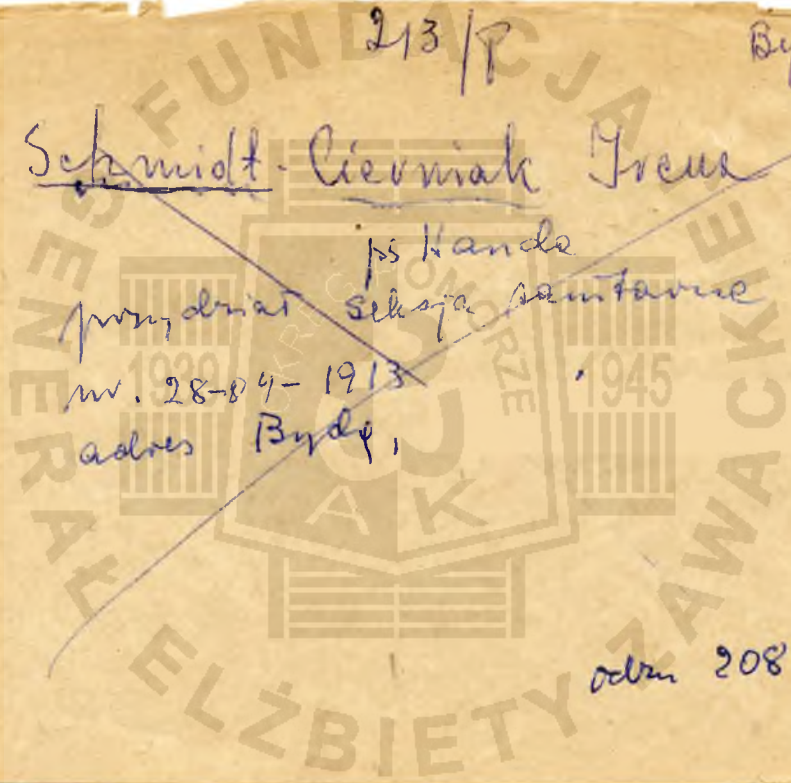 213/P By
Schmidt-Cierniak Irena
ps Wanda
przydział sekcja sanitarna
ur. 28-04-1913
adres Bydg,
odzn 208
FUNDACJA GENERAŁ ELŻBIETY ZAWACKIEJ
OKRĘG POMORZE
1939 1945
AK